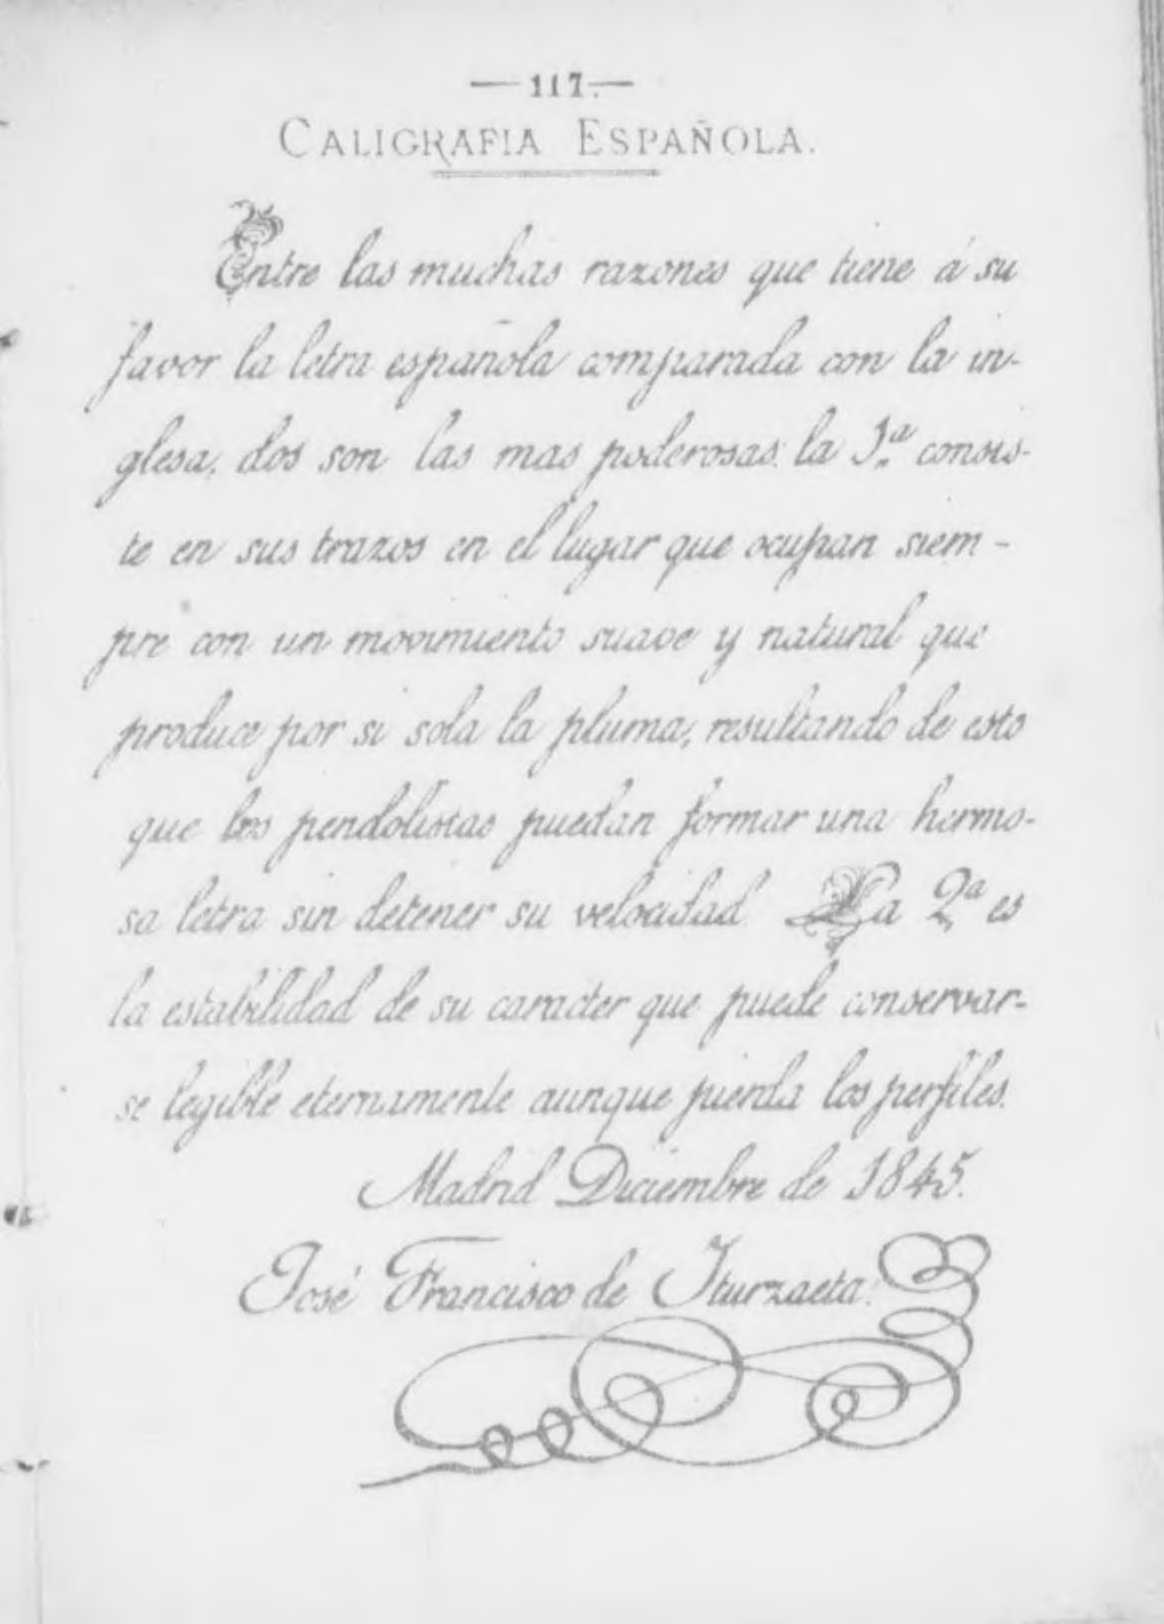 —117.—
CALIGRAFIA ESPAÑOLA.
Entre las muchas razones que tiene á su
favor la letra española comparada con la in-
glesa, dos son las mas poderosas: la 1.ª consis-
te en sus trazos en el lugar que ocupan siem-
pre con un movimiento suave y natural que
produce por si sola la pluma, resultando de esto
que los pendolistas puedan formar una hermo-
sa letra sin detener su velocidad. La 2.ª es
la estabilidad de su caracter que puede conservar-
se legible eternamente aunque pierda los perfiles.
Madrid Diciembre de 1845.
José Francisco de Iturzaeta.